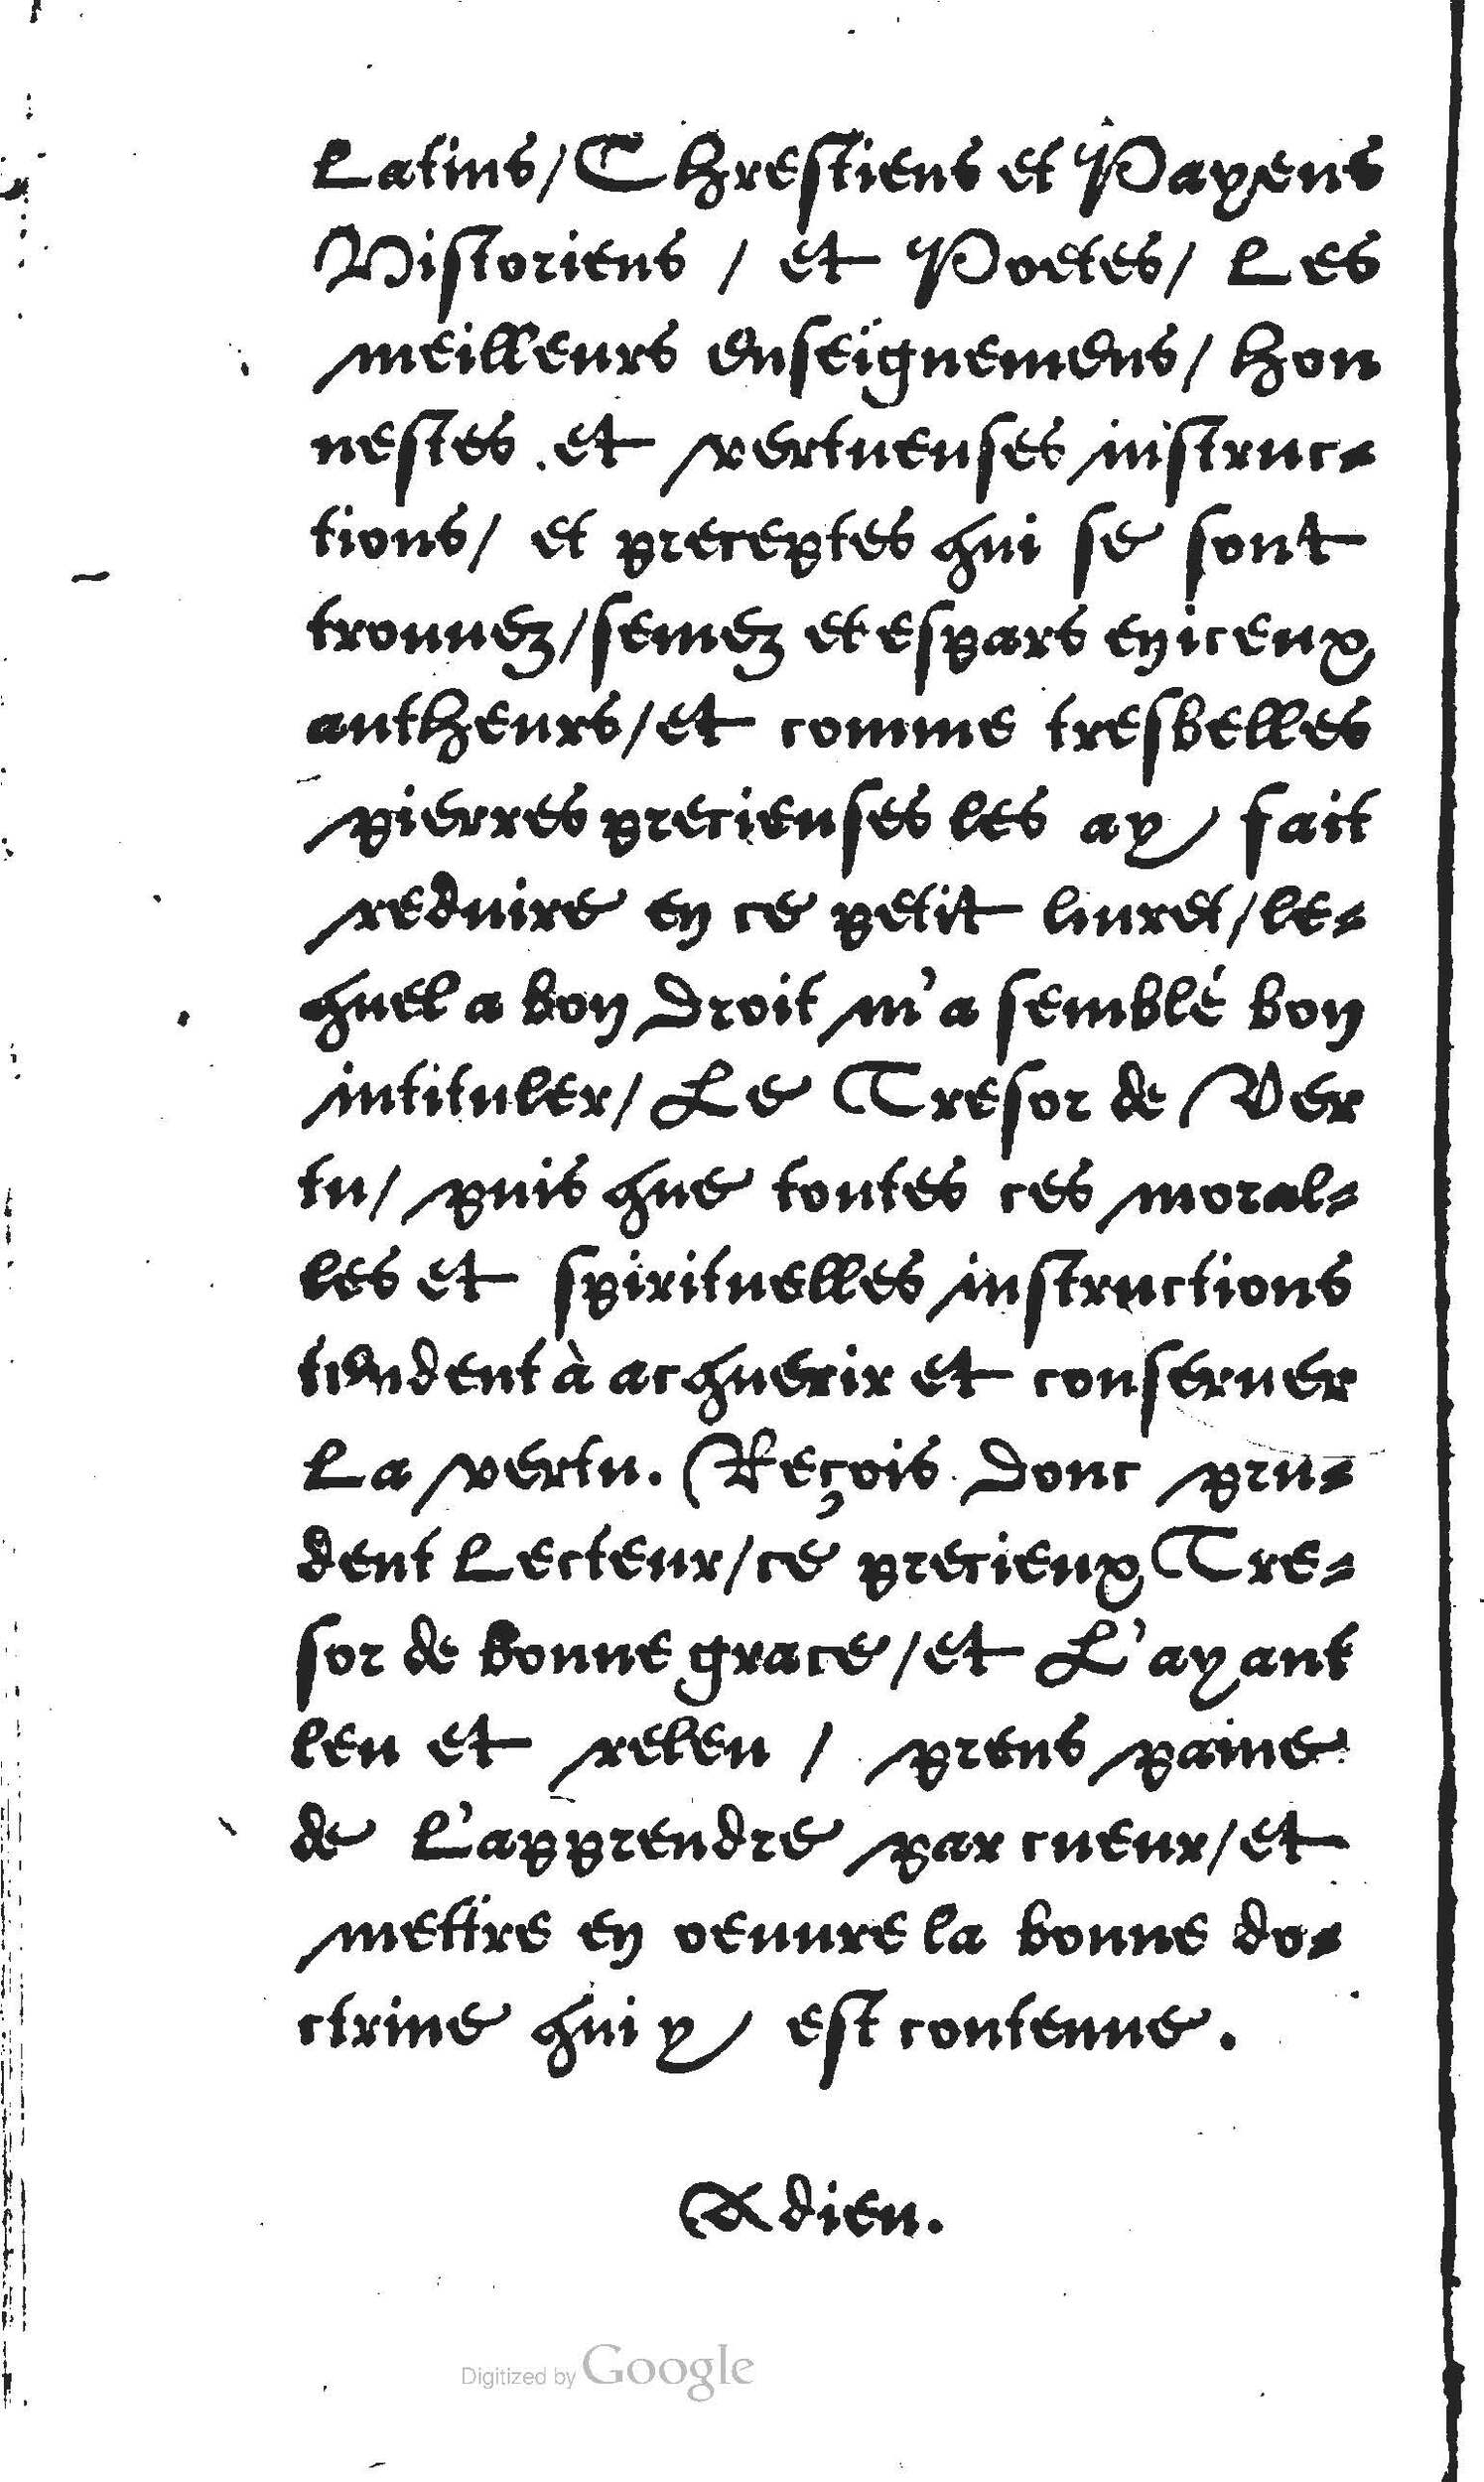 Latins/Chrestiens et Payens
Historiens / et Poetes/ Les
meilleurs enseïgnemens/ hon
nestes et vertueuses instruc-
tions/ et preceptes qui se sont
trouuez/semez et espars en iceux
autheurs/et comme tresbelles
pierres precieuses les ay fait
reduire en ce petit liuret/le-
quel a bon droit m'a semblé bon
intituler/ Le Tresor de Ver
tu/ puis que toutes ces moral-
les et spirituelles instructions
tendent à acquerir et conseruer
La vertu. Reçois donc pru-
dent Lecteur/ce precieux Tre-
sor de bonne grace/et L'ayant
leu et releu / prens paine
de L'apprendre par cueur/et
mettre en oeuure la bonne do-
ctrine qui y est contenue.
Adieu.
Digitized by Google